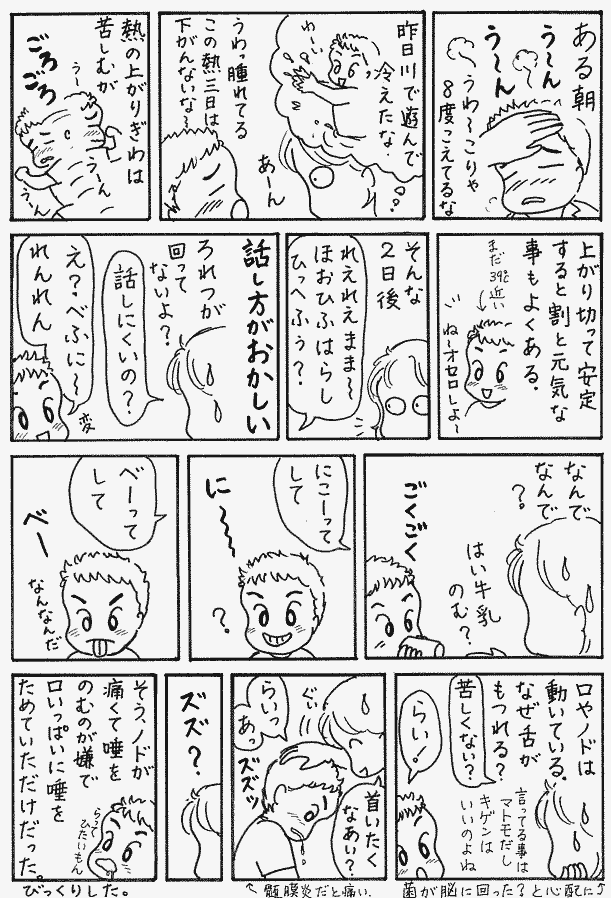 ある朝
う〜ん
う〜ん
うわ〜こりゃ
8度こえてるな
昨日川で遊んで
冷えたな.
わーい
うわっ腫れてる
この熱三日は
下がんないな〜
あーん
熱の上がりぎわは
苦しむが
ごろ
ごろ
う〜
う〜ん
う〜ん
上がり切って安定
すると割と元気な
事もよくある.
まだ39℃
近い
ね〜オセロしよ〜
そんな
2日後
れえれえまま〜
ほおひふはらし
ひっへふぅ?
話し方がおかしい
ろれつが
回って
ないよ?
話しにくいの?
え?.べふに〜
れんれん
変
なんで
なんで
?.
はい牛乳
のむ?
ごくごく
にこーって
して
に〜〜
?
べーって
して
べー
なんなんだ
口やノドは
動いている.
なぜ舌が
もつれる?
苦しくない?
らい!
言ってる事は
マトモだし
キゲンは
いいのよね
首いたく
なあい?
ぐい
らいっ
あっ
ズズッ
ズズ?
そう、ノドが
痛くて唾を
のむのが嫌で
口いっぱいに唾を
ためていただけだった。
らって
ひたいもん
菌が脳に回った?と心配に↑
↑髄膜炎だと痛い.
びっくりした。